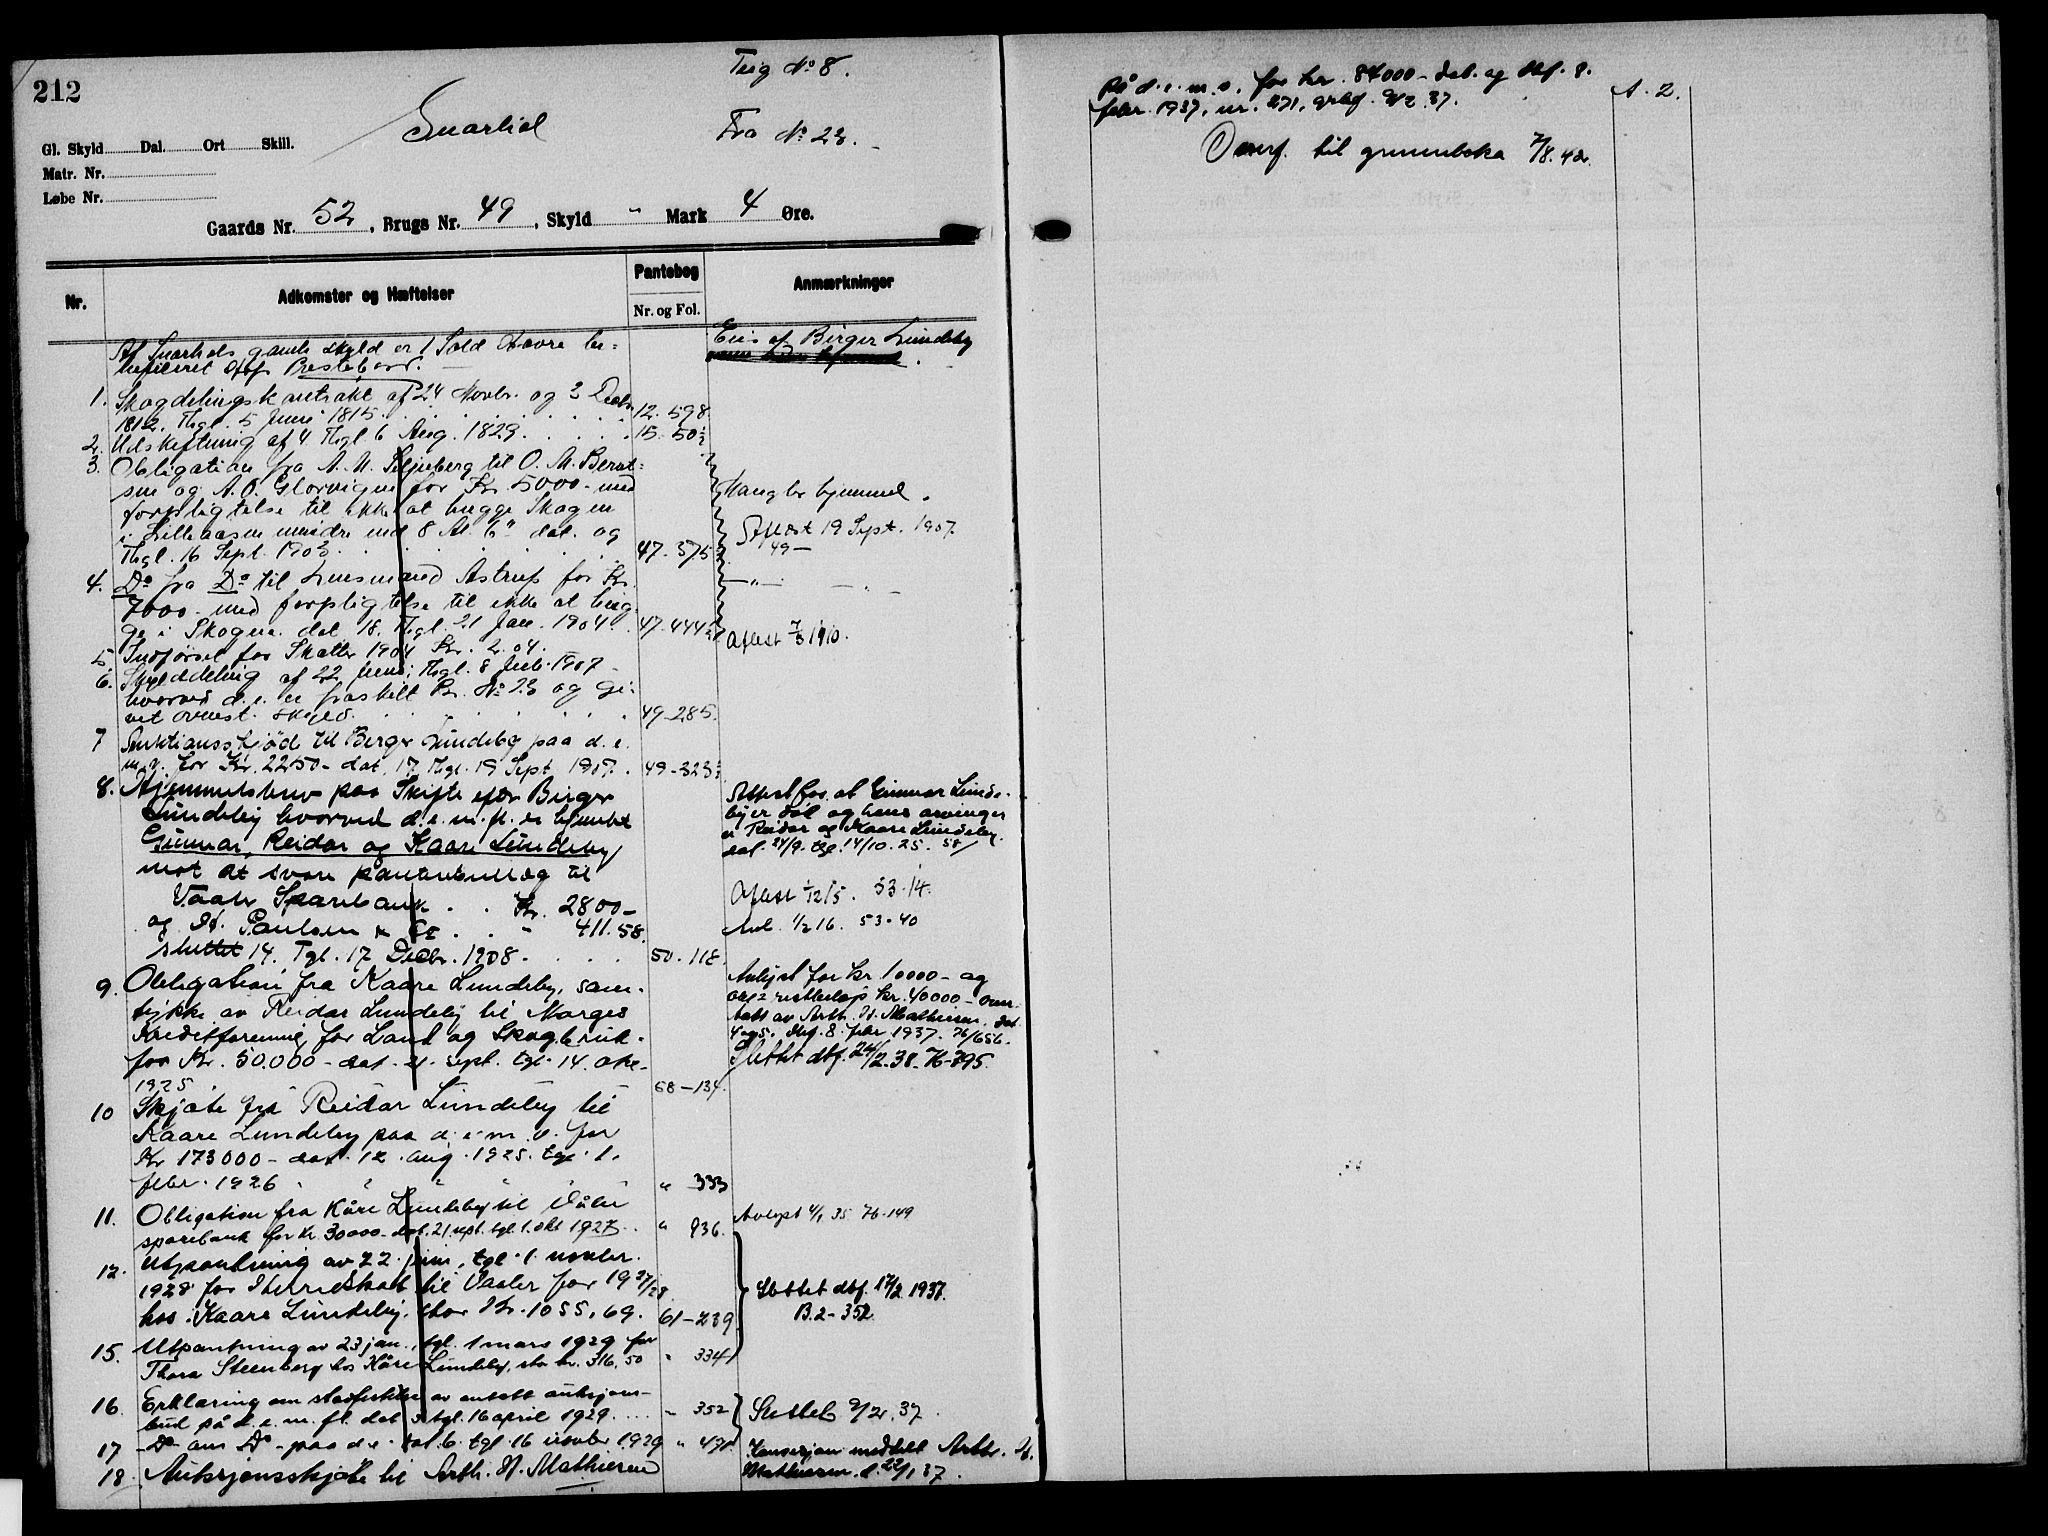 212
Teig No 8.
Snarhol
Fra No 23.
Gl. Skyld Dal. Ort Skill.
Matr. Nr.
Løbe Nr.
Gaards Nr. 52, Brugs Nr. 49, Skyld " Mark 4 Øre.
Nr.
Adkomster og Hæftelser
Pantebog
Nr. og Fol.
Anmærkninger
Af Snarhols gamle skyld er 1 Sold Havre be=
neficeret Prestebord.
Eies af Birger Lundeby
1. Skogdelingskontrakt af 24 Novbr. og 3 Decbr.
1812. Thgl. 5 Juni 1815. 12. 598.
2. Udskiftning af 4 Thgl 6 Aug. 1829. 15. 50½
3. Obligation fra A. M. Siljeberg til O. M. Bernt=
sen og A. O. Glorvigen for Kr. 5000 - med
forpligtelse til ikke at hugge Skogen
i Lilleaasen mindre end 8 Al. 6" dat. og
Thgl. 16 Sept. 1903. 47. 375
Mangler hjemmel.
Aflæst 19 Sept. 1907.
49 —
4. Do fra Do til Lensmand Astrup for Kr.
7000 - med forpligtelse til ikke at hug-
ge i Skogen. dat. 18. Thgl. 21 Jan. 1904. 47. 444½
— " —
5. Indførsel for Skatter 1904 Kr. 2.04.
Aflæst 7/3 1910.
6. Skylddeling af 22 Juni; Thgl. 8 Juli 1907 -
hvorved d. e. er fraskilt Br. No 23 og gi-
vet ovenst. skyld. 49-285.
7 Auktionsskjød til Birger Lundeby paa d. e.
m. v. for Kr. 2250 - dat. 17. Thgl. 19 Sept 1907. 49-323½
8. Hjemmelsbrev paa Skifte efter Birger
Lundeby hvorved d. e. m. fl. er hjemlet
Gunnar, Reidar og Kaare Lundeby
mot at svare pantutullæg til
Vaaler Sparebank . . Kr. 2800 -
og H. Paulsen & Co . . " 411.58.
sluttet 14. Tgl. 17 Decbr. 1908. 50. 118.
Attest for at Gunnar Lunde-
by er død og hans arvinger
er Reidar og Kaare Lundeby.
dat. 24/9. tgl. 14/10. 25. 58/
Aflæst 1/12 15. 53. 14.
Avl. 1/2 16. 53-40
9. Obligation fra Kaare Lundeby, sam-
tykke av Reidar Lundeby til Norges
Kreditforening for Land og Skogbruk.
for Kr. 50.000 - dat. 21. sept. tgl. 14. okt.
1925 58-134.
Avlyst for kr 10000 - og
restbeløp kr. 40000 - over-
tatt av Arth. H. Mathiesen, dat.
4 dbf. 8. febr 1937. 76/656.
Slettet dbf. 24/2-38. 76-795.
10 Skjøte fra Reidar Lundeby til
Kaare Lundeby paa d. e. m. v. for
Kr 173000 - dat. 12. aug. 1925. tgl. 1.
febr. 1926 " 333
11. Obligation fra Kåre Lundeby til Våler
sparebank for kr. 30000 - dat. 21. sept. tgl. 1. okt 1927. " 936.
Avlyst 4/1 35 76-149
12. Utpantning av 22. juni, tgl. 1. novbr.
1928 for Herredskat til Vaaler for 1927/28
hos Kaare Lundeby, stor Kr. 1055,69. 61-239
Slettet dbf. 17/2 1937.
B. 2-352
15. Utpantning av 23 jan., tgl. 1 mars 1929 for
Thora Steenberg hos Kåre Lundeby, stor kr. 316,50 " 334
16. Erklæring om stadfestelse av antatt auksjons-
bud på d. e. m. fl. dat 3. tgl. 16 april 1929. . . . " 352
Slettet 9/2. 37.
17 Do om Do - paa d. e. dat. 6. tgl. 16 novbr 1929 " 471.
Konsesjon meddelt Arth. H.
Mathiesen d. 22/1 37.
18. Auksjonsskjøte til Arth. H. Mathiesen
På d. e. m. v. for kr. 84000 - dat. og dbf. 8.
febr. 1937, nr. 271, 9/2 37. A. 2.
Overf. til grunnboka 7/8. 42.